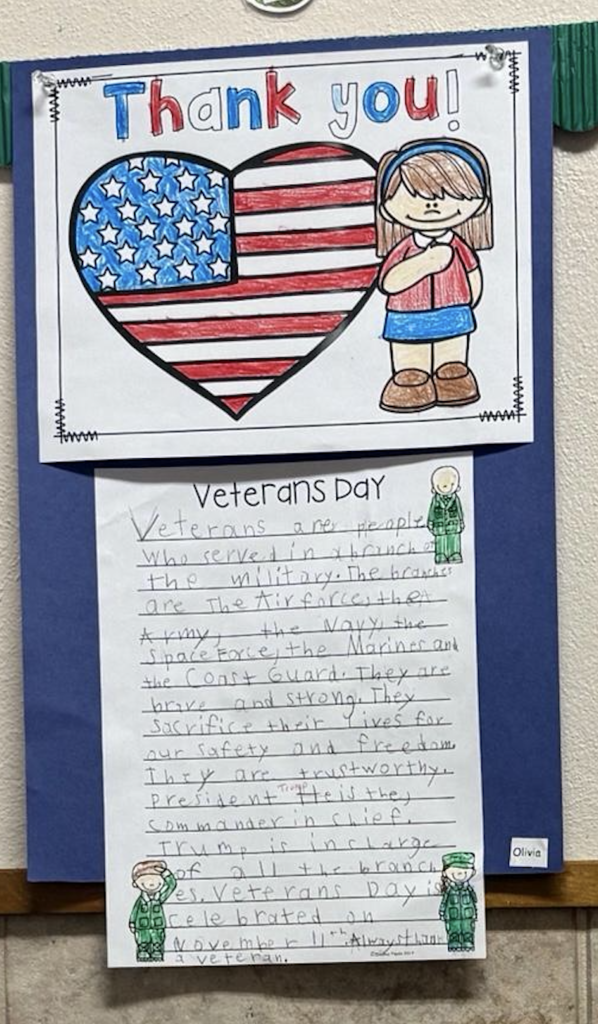 Thank you!
Veterans Day
Veterans are people
who served in a branch of
the military. The branches
are The Air force, the
Army, the Navy, the
Space Force, the Marines and
the Coast Guard. They are
brave and strong. They
sacrifice their lives for
our safety and freedom.
They are trustworthy.
President Trump He is the
commander in chief.
Trump is in charge
of all the branch
es. Veterans Day is
celebrated on
November 11th. Always thank
a veteran.
Olivia